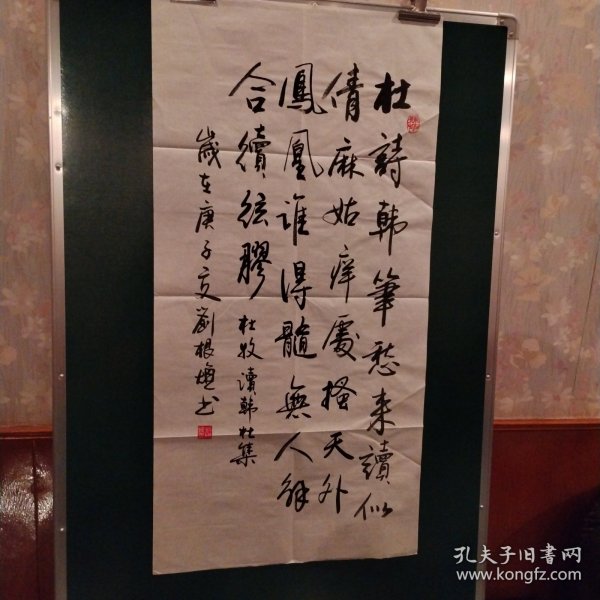 杜詩韩筆愁来讀似
倩麻姑痒處搔天外
鳳凰誰得髓無人解
合續弦膠
杜牧讀韩杜集
歲在庚子夏劉根
书
孔夫子旧书网
www.kongfz.com